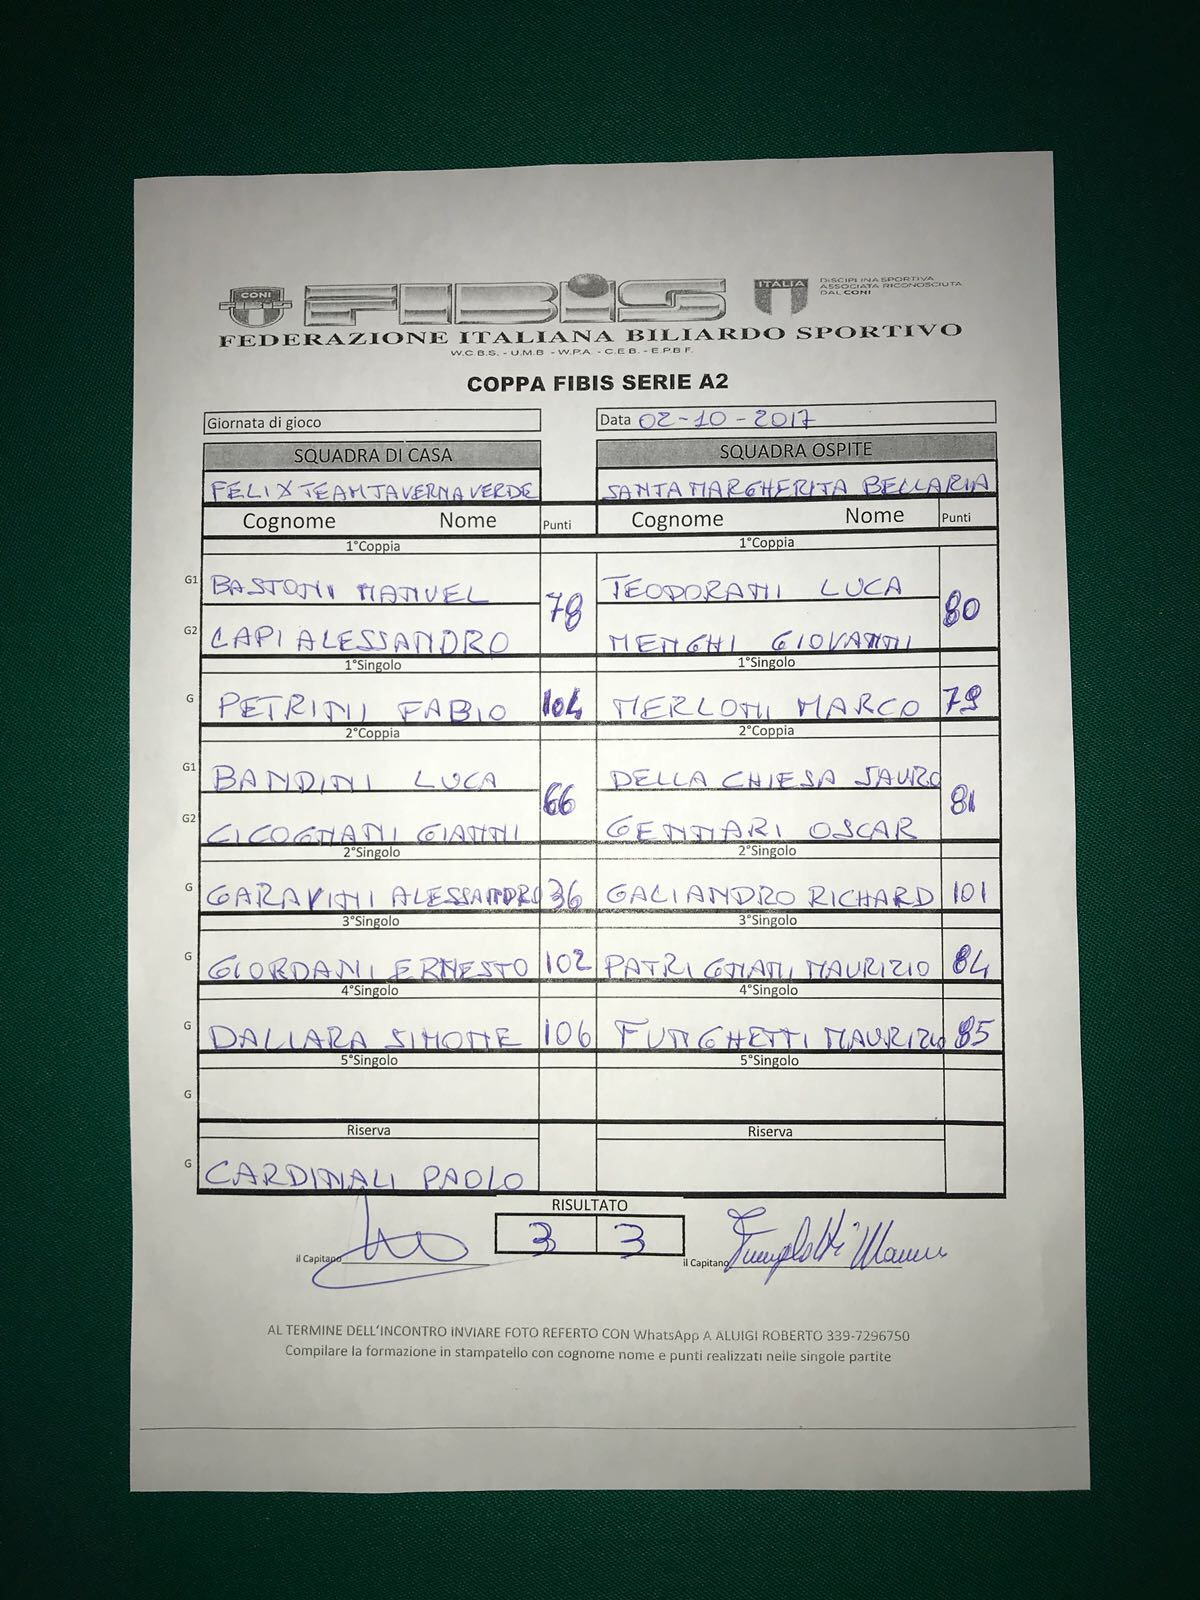 CONI FIBiS ITALIA DISCIPLINA SPORTIVA
ASSOCIATA RICONOSCIUTA
DAL CONI
FEDERAZIONE ITALIANA BILIARDO SPORTIVO
W.C.B.S. - U.M.B - W.P.A - C.E.B. - E.P.B.F.
COPPA FIBIS SERIE A2
Giornata di gioco Data 02-10-2017
SQUADRA DI CASA SQUADRA OSPITE
FELIX TEAM TAVERNA VERDE SANTA MARGHERITA BELLARIA
Cognome Nome Punti Cognome Nome Punti
1°Coppia 1°Coppia
G1 BASTONI MANUEL 78 TEODORANI LUCA 80
G2 CAPI ALESSANDRO MENGHI GIOVANNI
1°Singolo 1°Singolo
G PETRINI FABIO 104 MERLONI MARCO 79
2°Coppia 2°Coppia
G1 BANDINI LUCA 66 DELLA CHIESA SAURO 81
G2 CICOGNANI GIANNI GENNARI OSCAR
2°Singolo 2°Singolo
G GARAVINI ALESSANDRO 36 GALIANDRO RICHARD 101
3°Singolo 3°Singolo
G GIORDANI ERNESTO 102 PATRIGNANI MAURIZIO 84
4°Singolo 4°Singolo
G DALLARA SIMONE 106 FUNGHETTI MAURIZIO 85
5°Singolo 5°Singolo
G
Riserva Riserva
G CARDINALI PAOLO
RISULTATO
3 3
il Capitano il Capitano
AL TERMINE DELL'INCONTRO INVIARE FOTO REFERTO CON WhatsApp A ALUIGI ROBERTO 339-7296750
Compilare la formazione in stampatello con cognome nome e punti realizzati nelle singole partite